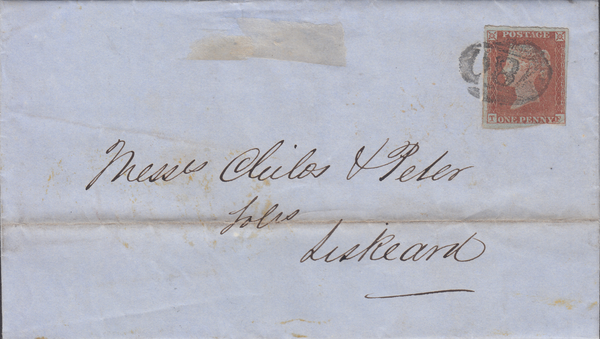 POSTAGE
T
ONE PENNY
Messrs Childs & Peter
Solrs
Liskeard